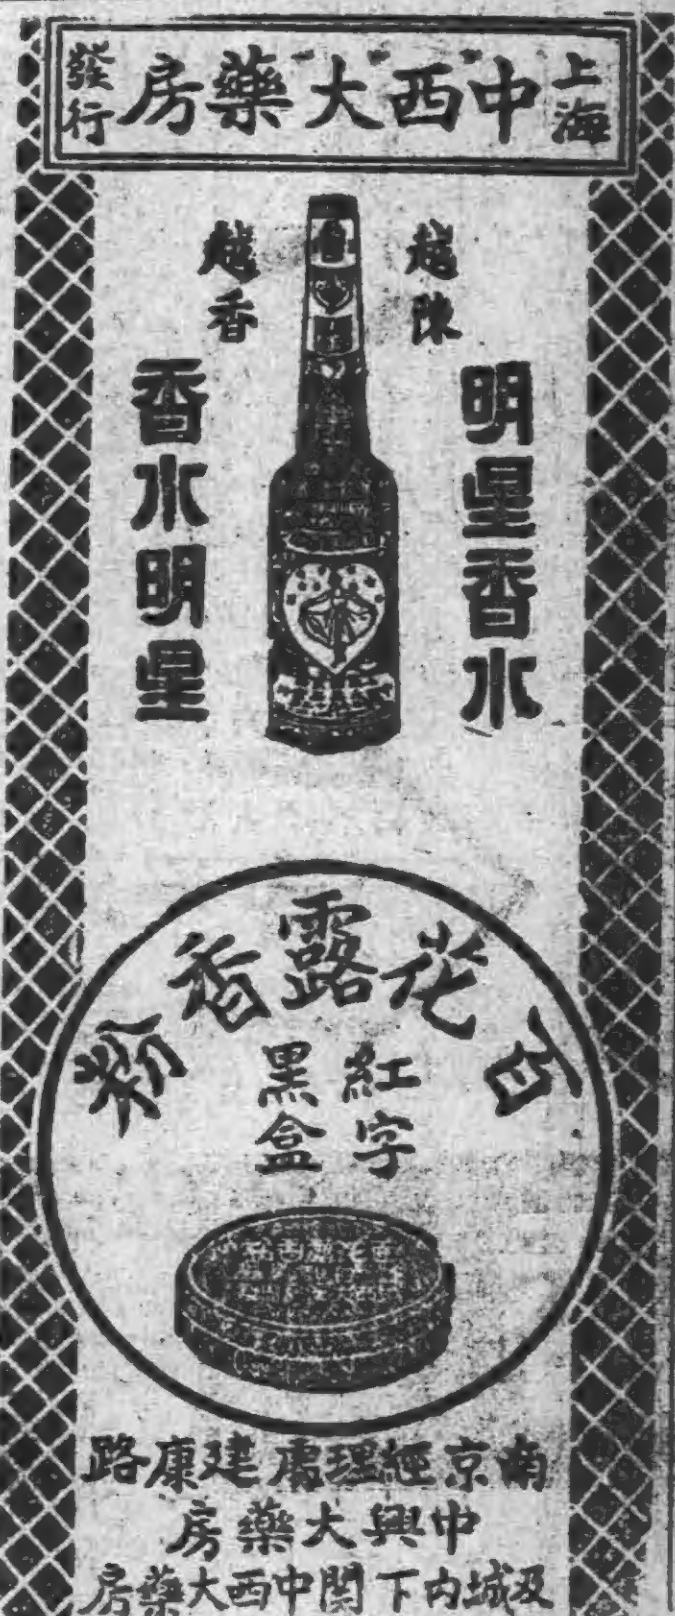 上海中西大藥房發行
越陳
越香
明星香水
香水明星
百花露香粉
紅字
黑盒
南京經理處建康路
中興大藥房
及城內下關中西大藥房